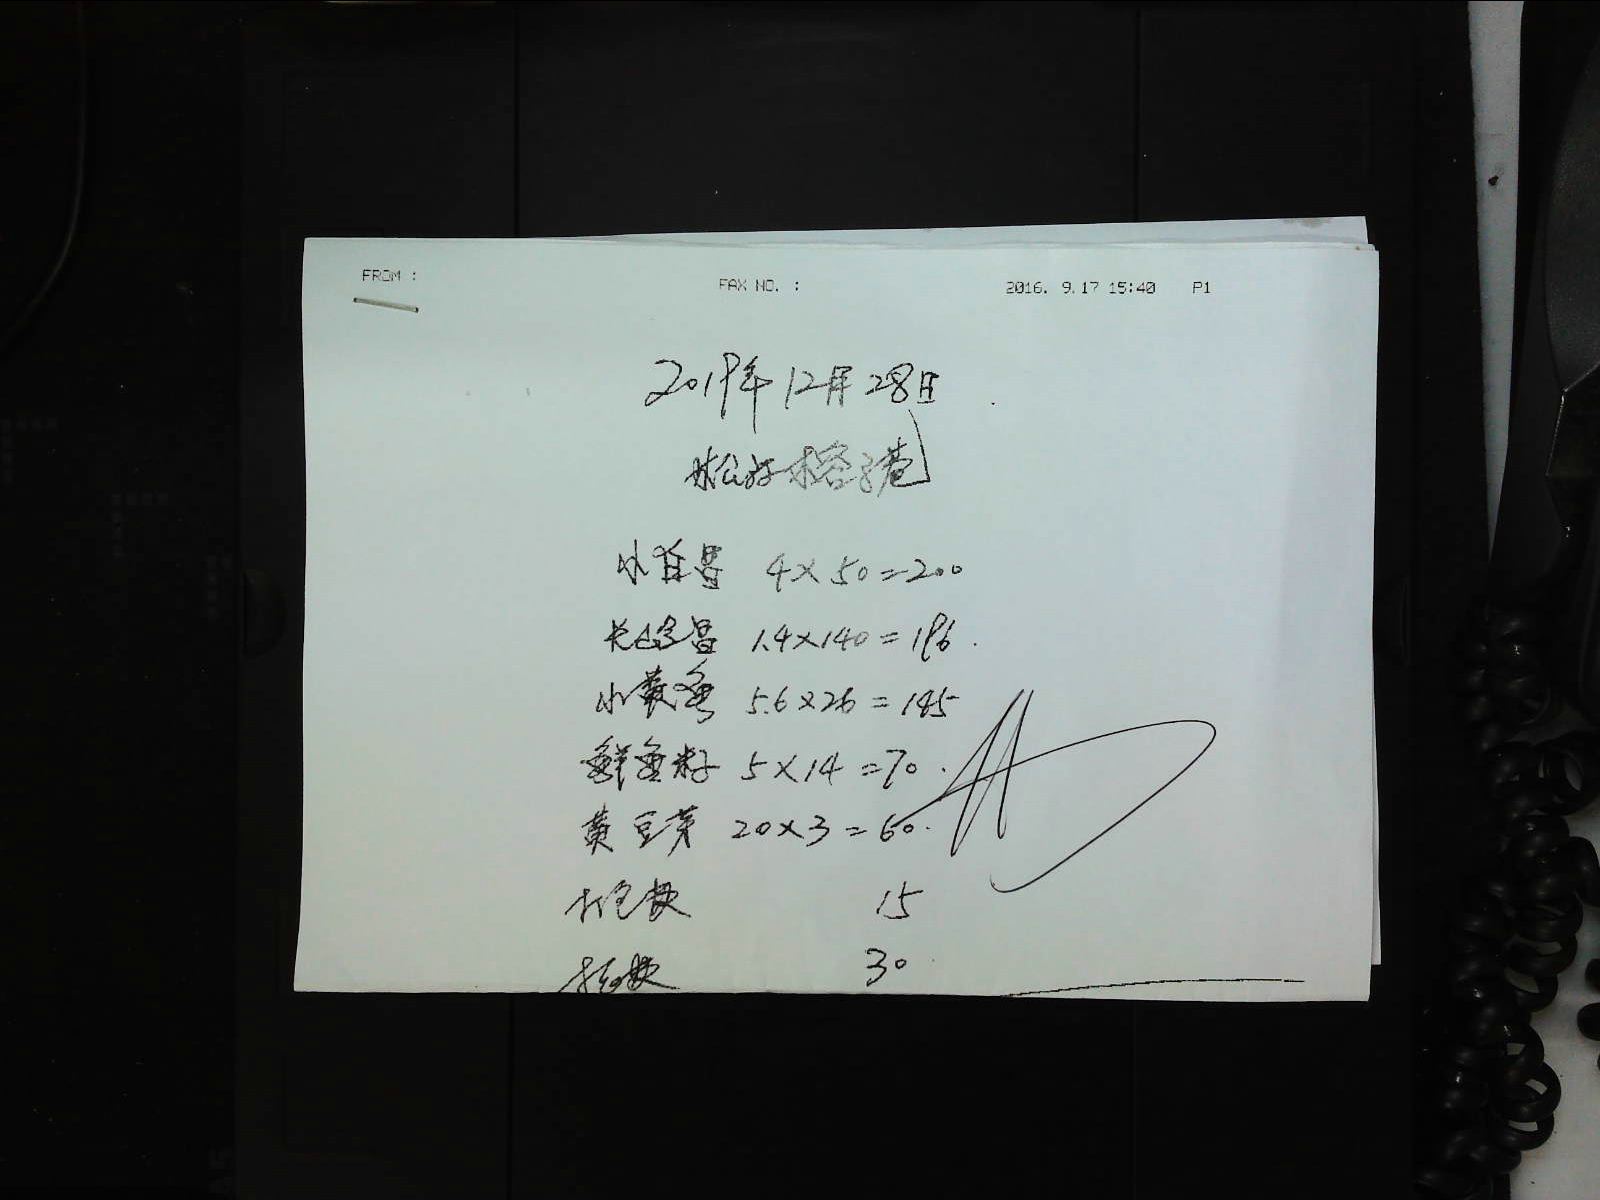 FROM :
FAX NO. :
2016. 9.17 15:40 P1
2019年12月28日
4×50=200
1.4×140=196.
小黄鱼 5.6×26=145
鲜鱼籽 5×14=70.
黄豆芽 20×3=60.
打包费 15
30